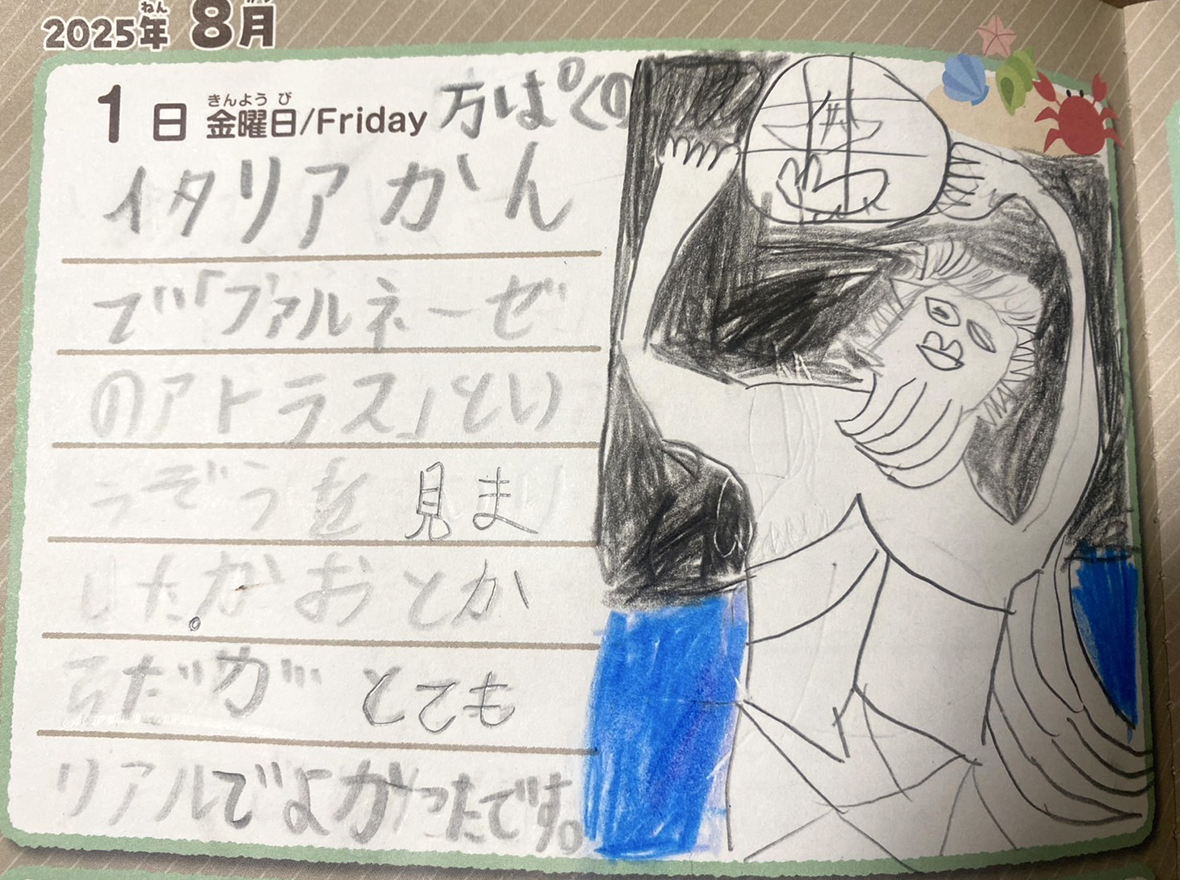 ねん がつ
2025年 8月
きんよう び
1日 金曜日/Friday 方ぱくの
イタリアかん
で「ファルネーゼ
のアトラス」とい
うぞうを見ま
した。かおとか
らだが とても
リアルでよかったです。